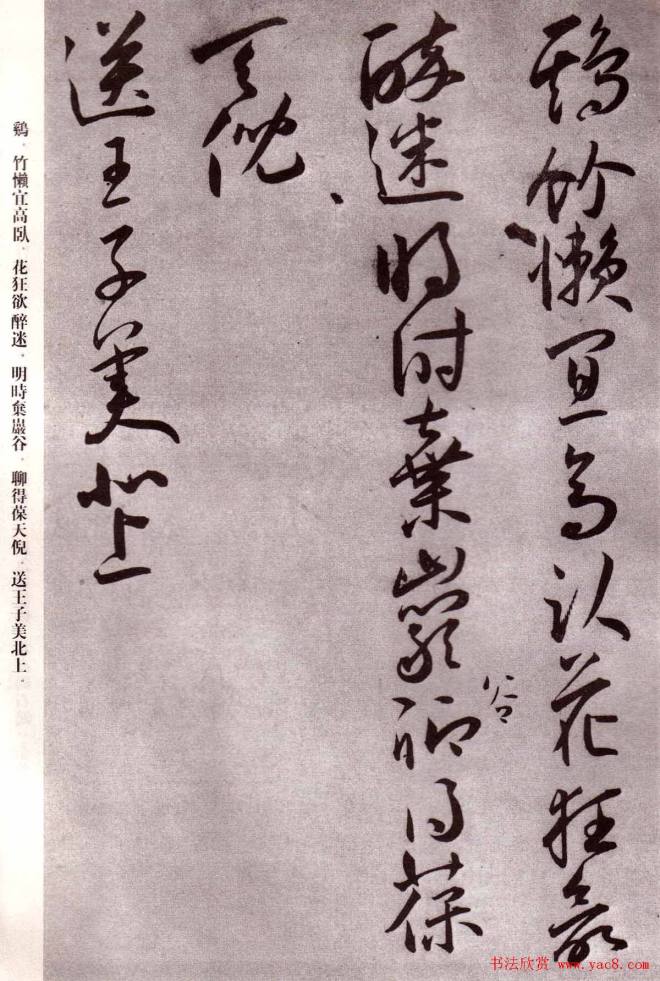 鵶竹懒宜高卧花狂欲
醉迷明时弃岩聊得葆
谷
天倪
送王子美北上
鷄．竹懒宜高臥．花狂欲醉迷．明時棄巖谷．聊得葆天倪．送王子美北上．
书法欣赏 www.yac8.com